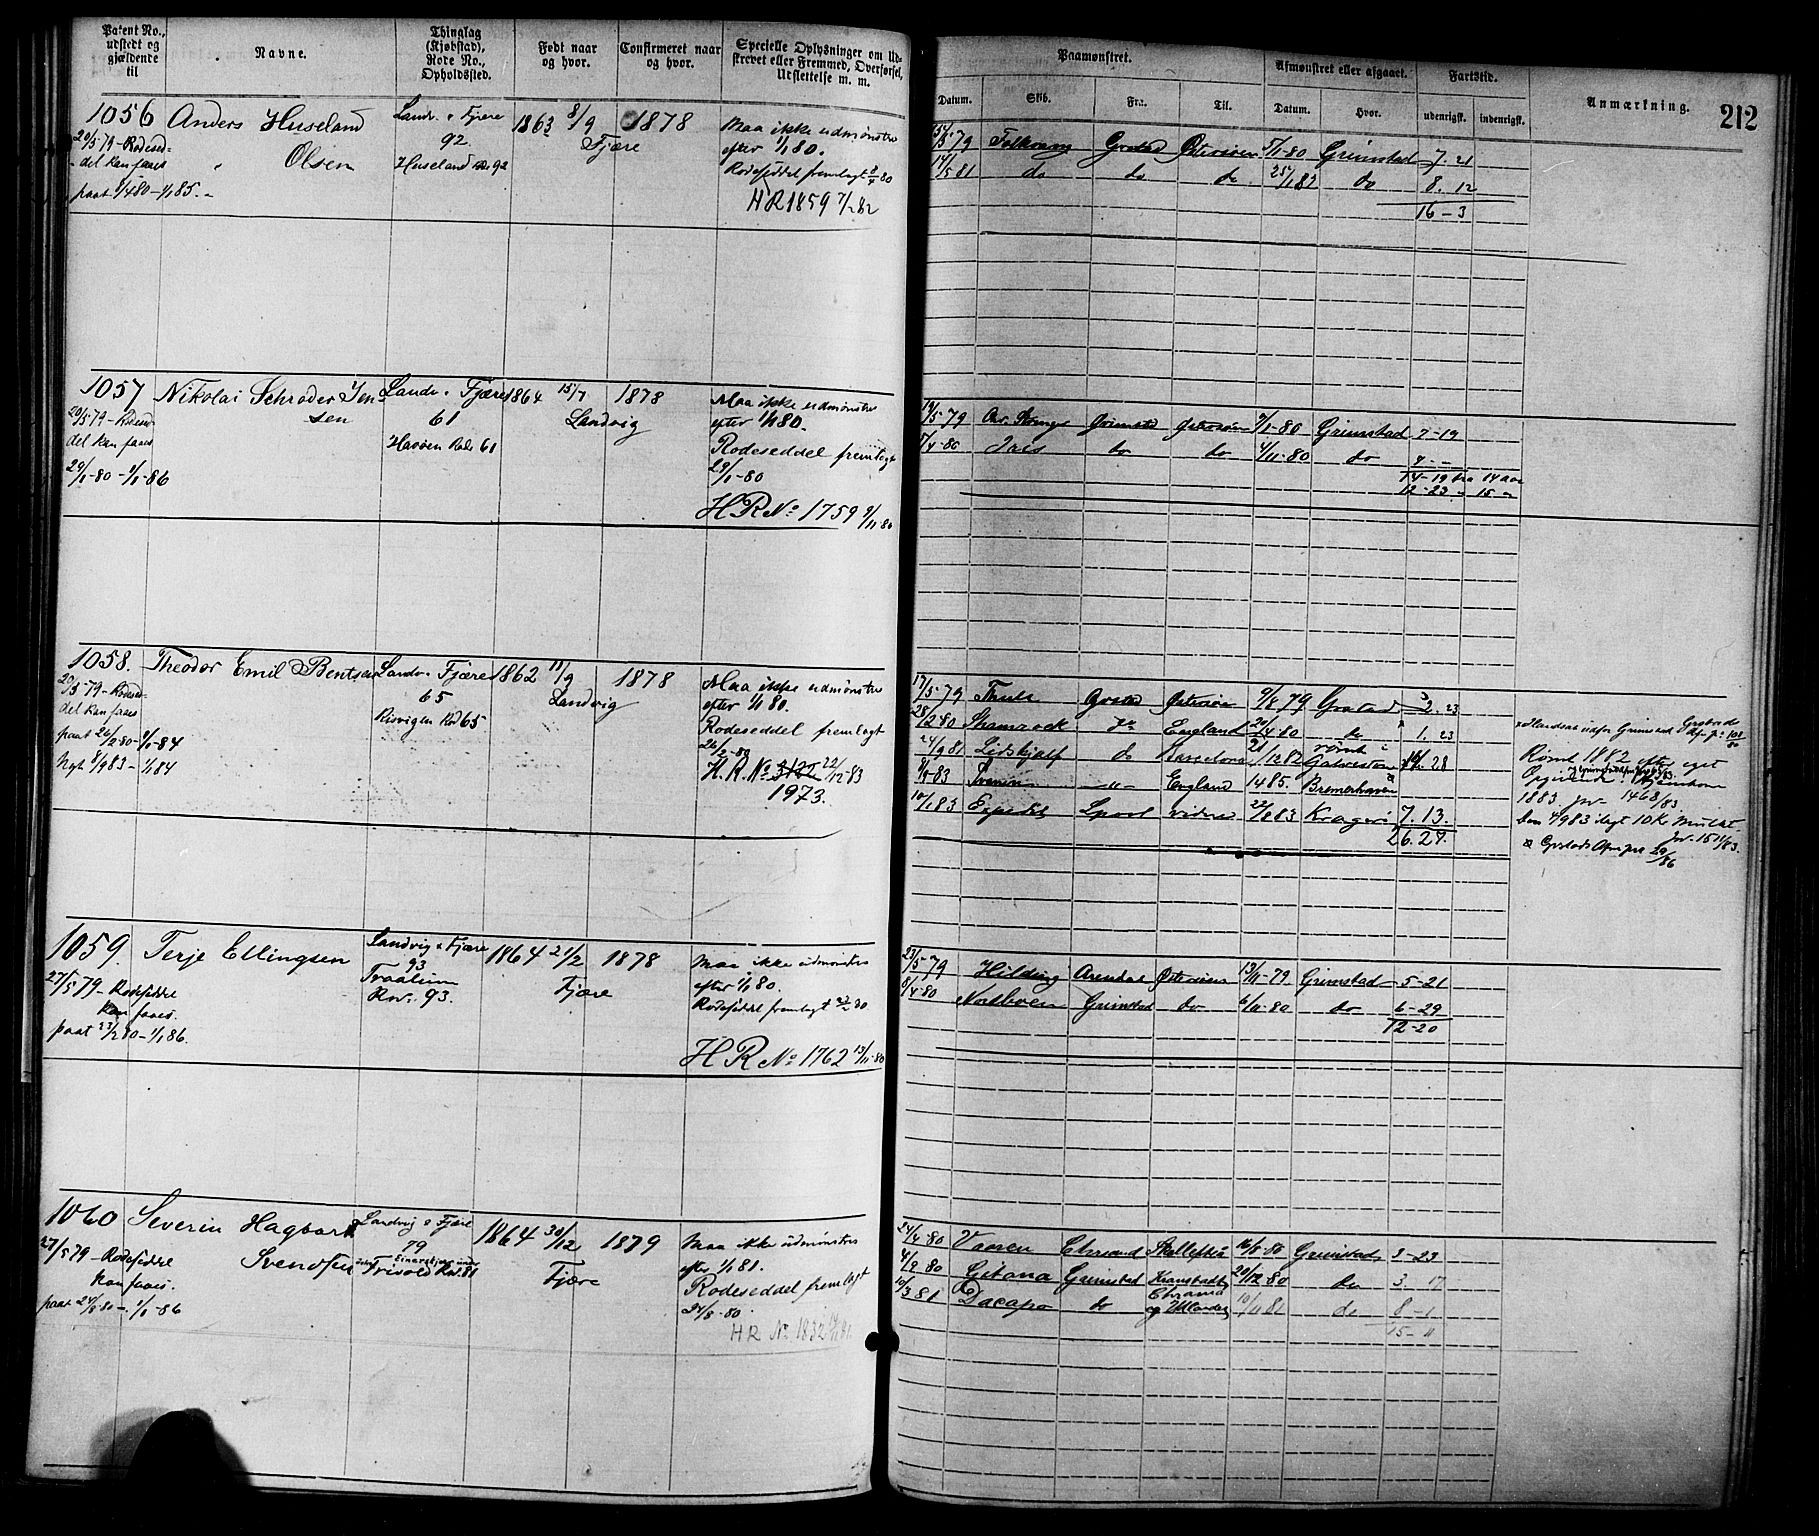 Patent No., udstedt og gjældende til
Navne.
Thinglag (Kjøbstad), Rode No., Opholdssted.
Født naar og hvor.
Confirmeret naar og hvor.
Specielle Oplysninger om Udskrevet eller Fremmed, Overførsel, Udslettelse m. m.
Paamønstret.
Datum.
Skib.
Fra.
Til.
Afmønstret eller afgaaet.
Datum.
Hvor.
Fartstid.
udenrigsk.
indenrigsk.
Anmærkning.
212
1056 Anders Huseland
Olsen
20/5 79 - Rodesed-
del kan faaes
paat 1/4 80 - 1/1 85. -
Landv. o Fjære
92
Huseland Rd 92
1863 8/9
Fjære
1878
Maa ikke udmønstres
efter 1/1 80.
Rodeseddel fremlagt
HR 1859 7/2 82
15/5 79 Grstad Østersøen 5/1 80 Grimstad 7. 21
14/5 81 do do do 25/1 82 do 8. 12
16 - 3
1057 Nikolai Schrøder Jen
sen
20/5 79 - Rodesed-
del kan faaes
29/1 - 80 - 1/1 - 86
Landv. o Fjære
61
Havøen Rode 61
1864 15/7
Landvig
1878
Maa ikke udmønstres
efter 1/1 80.
Rodeseddel fremlagt
29/1 - 80
HR No 1759 9/11 80
19/5 79 Grimstd Østersøen 9/1 - 80 Grimstad 7 - 19
7/4 - 80 Iris do do 4/11 - 80 do 7 - -
14 - 19 fra 14 aar
12 - 23 " 15 "
1058. Theodor Emil Bentsen
20/5 79 - Rodesed-
del kan faaes
paat 26/2 80 - 1/1 - 84
Nyt 8/9 83 - 1/1 84
Landv. o Fjære
65
Risvigen Rod 65
1862 11/9
Landvig
1878
Maa ikke udmønstres
efter 1/1 80.
Rodeseddel fremlagt
26/2 - 80
H. R. No 22/12 83
1973.
17/5 79 Thule Grstad Østersøen 9/8 79 Grstad 2. 23
28/2 80 Shamrock do England 20/4 80 do 1. 23
24/9 81 Lidskjalf do 21/12 82 rømt i
Galveston 14. 28
8/9 - 83 England 14 85. Bremerhaven
10/1 83 Expedit Lpool videre 22/8 83 Kragerø 7. 13.
26. 27.
Rømt 1882 efter eget
1883. jnr 1468/83.
1059. Terje Ellingsen
27/5 79 - Rodeseddel
kan faaes.
paat 23/2 80 - 1/1 86.
Landvig o Fjære
93
Traalum
Rod. 93.
1864 21/2
Fjære
1878
Maa ikke udmønstres
efter 1/1 80.
Rodeseddel fremlagt 23/2 80
HR No 1762 13/11 - 80
23/5 79 Hilding Arendal Østersøen 13/11 - 79 Grimstad 5 - 21
8/4 - 80 Grimstad do 6/11 - 80 do 6 - 29
12 - 20
1060 Severin Hagbart
Svendsen
27/5 79 - Rodeseddel
kan faaes.
paat 24/8 80 - 1/1 - 86
Landvig o Fjære
79
Trivold Rod. 81
1864 30/12
Fjære
1879
Maa ikke udmønstres
efter 1/1 81.
Rodeseddel fremlagt
24/8 - 80
HR No 1832
24/4 - 80 16/8 - 80 Grimstad 3 - 23
4/9 80 Gitana Grimstad Kronstadt 20/12 80 do 3. 17
10/3 81 Dacapo do Chrania
og Utlandet 10/11 81 do 8 - 1
15 - 11